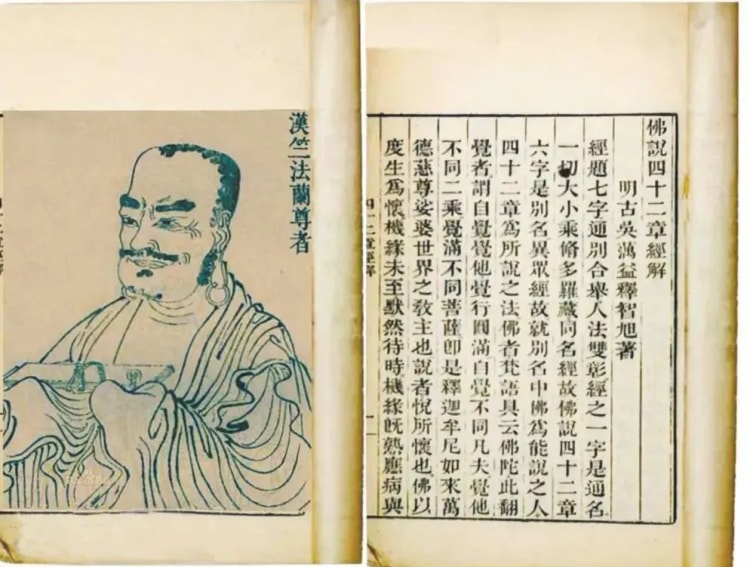 漢竺法蘭尊者
佛說四十二章經解
明古吳蕅益釋智旭著
經題七字通別合舉人法雙彰經之一字是通名
一切大小乘脩多羅藏同名經故佛說四十二章
六字是別名異眾經故就別名中佛爲能說之人
四十二章爲所說之法佛者梵語具云佛陀此翻
覺者謂自覺覺他覺行圓滿自覺不同凡夫覺他
不同二乘覺滿不同菩薩卽是釋迦牟尼如來萬
德慈尊娑婆世界之教主也說者悅所懷也佛以
度生爲懷機緣未至默然待時機緣旣熟應病與